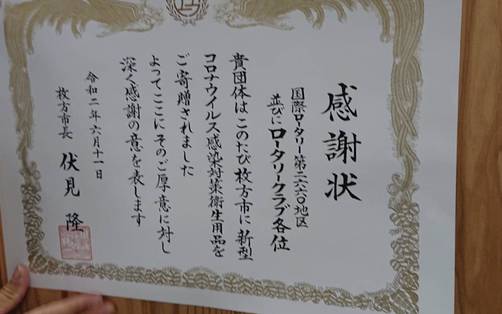 感謝状
国際ロータリー第二六六〇地区
並びにロータリークラブ各位
貴団体はこのたび枚方市に新型
コロナウイルス感染対策衛生用品を
ご寄贈されました
よってここにそのご厚意に対し
深く感謝の意を表します
令和二年六月十一日
枚方市長 伏見 隆